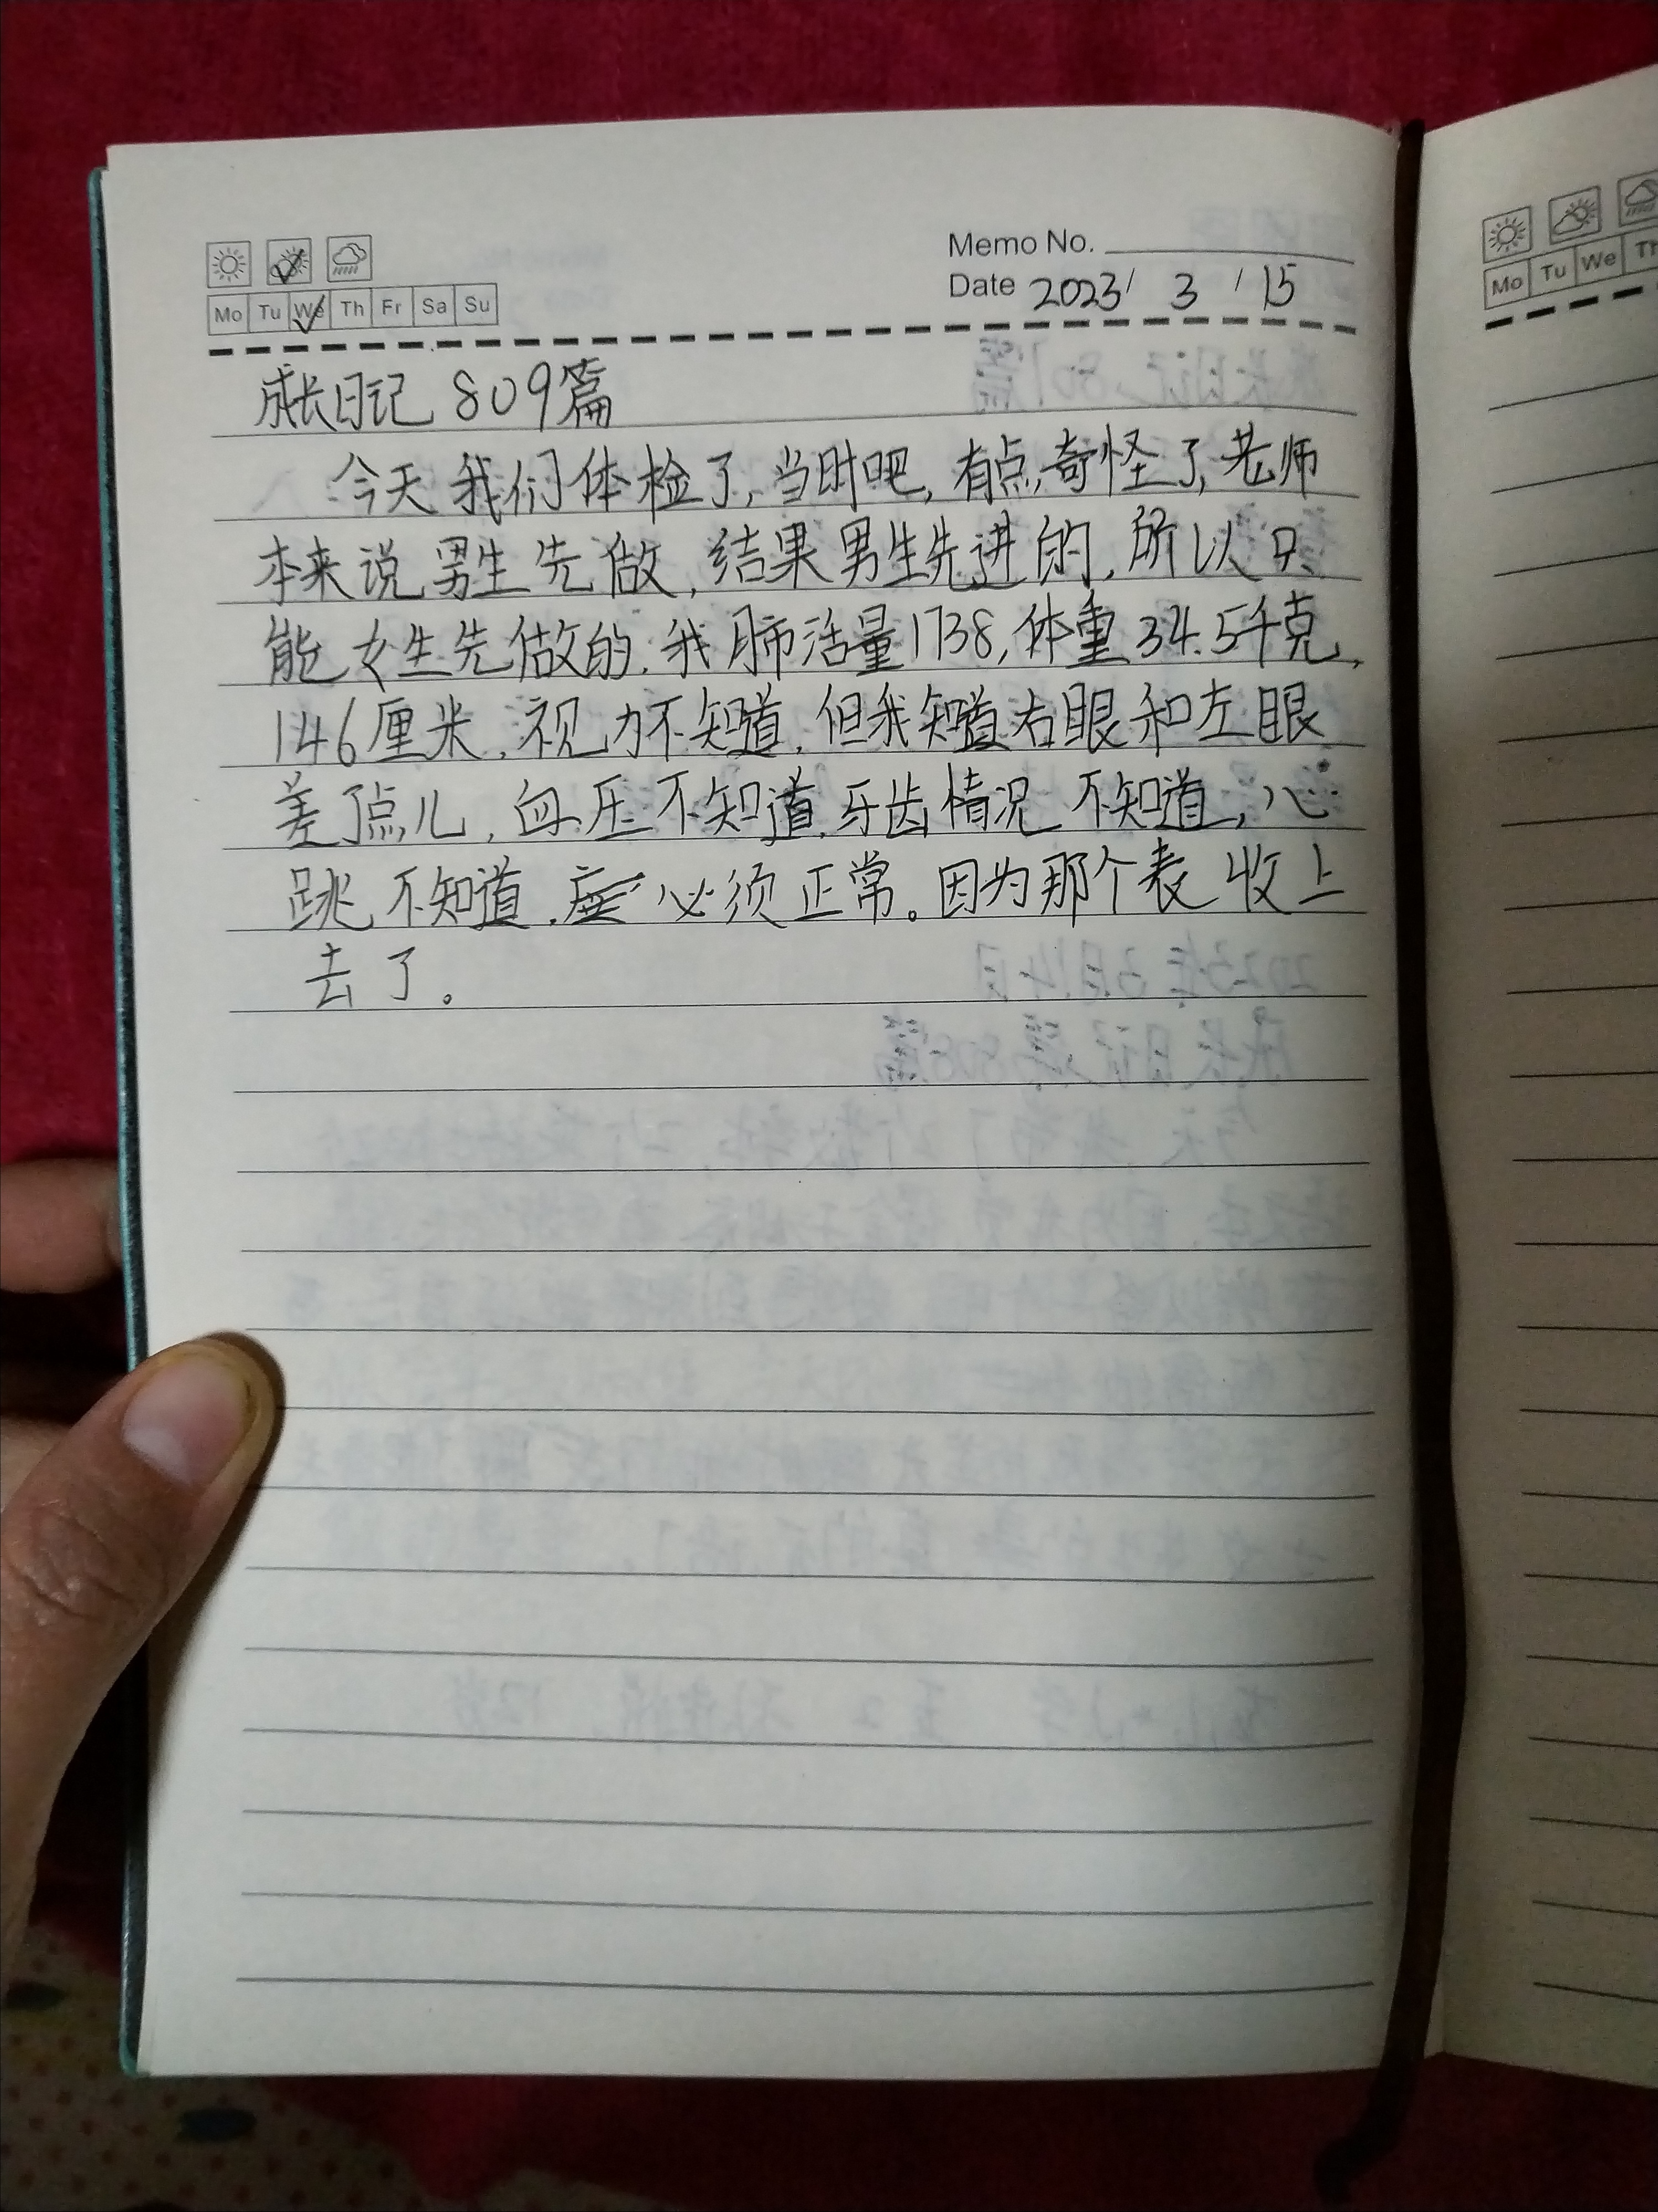 Memo No.
Date 2023/ 3 / 15
Mo Tu We Th Fr Sa Su
Mo Tu We Th
成长日记 809篇
今天我们体检了,当时吧,有点奇怪了,老师
本来说男生先做,结果男生先进的,所以只
能女生先做的.我肺活量1738,体重34.5千克,
146厘米,视力不知道,但我知道右眼和左眼
差了点儿,血压不知道,牙齿情况不知道,心
跳不知道,必须正常。因为那个表收上
去了。